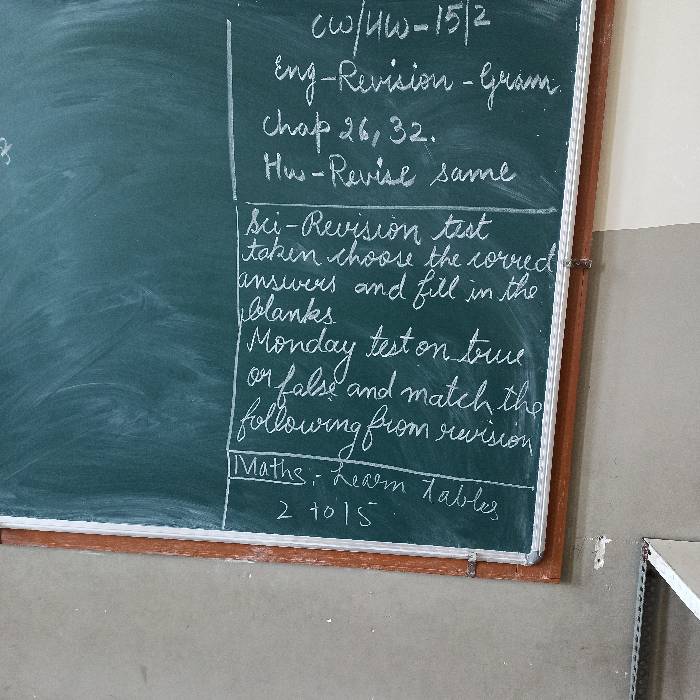 CW/HW-15/2
Eng-Revision-Gram.
Chap 26, 32.
Hw-Revise same
Sci-Revision test
taken choose the correct
answers and fill in the
blanks
Monday test on true
or false and match the
following from revision
Maths - Learn Tables
2 to 15